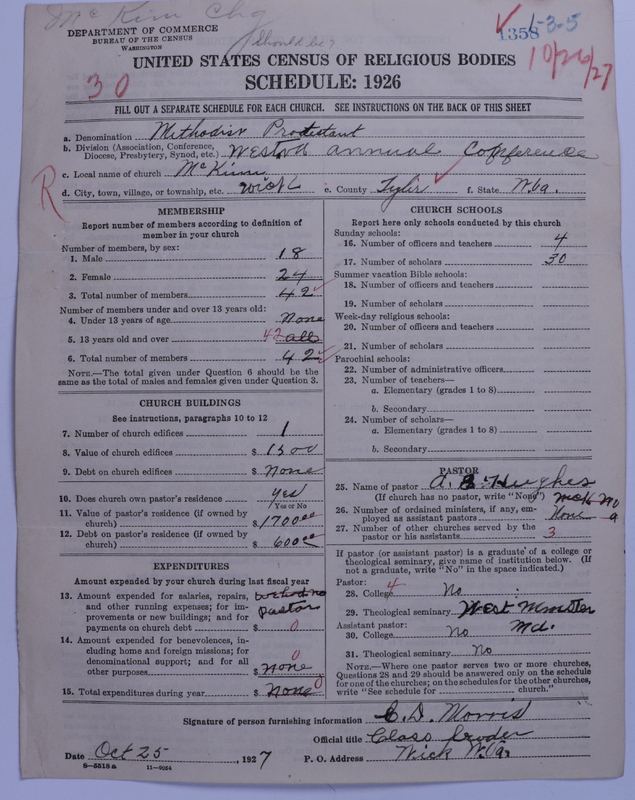 Mc Kim Chg
should be?
DEPARTMENT OF COMMERCE
BUREAU OF THE CENSUS
WASHINGTON
1358
1-3-5
10/26/27
30
UNITED STATES CENSUS OF RELIGIOUS BODIES
SCHEDULE: 1926
FILL OUT A SEPARATE SCHEDULE FOR EACH CHURCH. SEE INSTRUCTIONS ON THE BACK OF THIS SHEET
a. Denomination Methodist Protestant
b. Division (Association, Conference, Diocese, Presbytery, Synod, etc.) West Va annual Conference
c. Local name of church McKim
d. City, town, village, or township, etc. Wick e. County Tyler f. State W.Va.
R
MEMBERSHIP
Report number of members according to definition of
member in your church
Number of members, by sex:
1. Male 18
2. Female 24
3. Total number of members 42
Number of members under and over 13 years old:
4. Under 13 years of age None
5. 13 years old and over 42 all
6. Total number of members 42
NOTE.—The total given under Question 6 should be the
same as the total of males and females given under Question 3.
CHURCH BUILDINGS
See instructions, paragraphs 10 to 12
7. Number of church edifices 1
8. Value of church edifices $ 1500
9. Debt on church edifices $ None
10. Does church own pastor's residence yes
(Yes or No)
11. Value of pastor's residence (if owned by
church) $ 1700.00
12. Debt on pastor's residence (if owned by
church) $ 600.00
EXPENDITURES
Amount expended by your church during last fiscal year
13. Amount expended for salaries, repairs,
and other running expenses; for im-
provements or new buildings; and for
payments on church debt $ 0
pastor
14. Amount expended for benevolences, in-
cluding home and foreign missions; for
denominational support; and for all
other purposes $ None 0
15. Total expenditures during year $ None 0
CHURCH SCHOOLS
Report here only schools conducted by this church
Sunday schools:
16. Number of officers and teachers 4
17. Number of scholars 30
Summer vacation Bible schools:
18. Number of officers and teachers
19. Number of scholars
Week-day religious schools:
20. Number of officers and teachers
21. Number of scholars
Parochial schools:
22. Number of administrative officers
23. Number of teachers—
a. Elementary (grades 1 to 8)
b. Secondary
24. Number of scholars—
a. Elementary (grades 1 to 8)
b. Secondary
PASTOR
25. Name of pastor Hughes
(If church has no pastor, write "None")
26. Number of ordained ministers, if any, em-
ployed as assistant pastors None
27. Number of other churches served by the
pastor or his assistants 3
If pastor (or assistant pastor) is a graduate of a college or
theological seminary, give name of institution below. (If
not a graduate, write "No" in the space indicated.)
Pastor:
28. College No
4
29. Theological seminary West Minster
Md.
Assistant pastor:
30. College No
31. Theological seminary No
NOTE.—Where one pastor serves two or more churches,
Questions 28 and 29 should be answered only on the schedule
for one of the churches; on the schedules for the other churches,
write "See schedule for church."
Signature of person furnishing information C. D. Morris
Official title Class Leader
Date Oct 25, 1927 P. O. Address Wick W.Va.
8-5518 a 11-9054